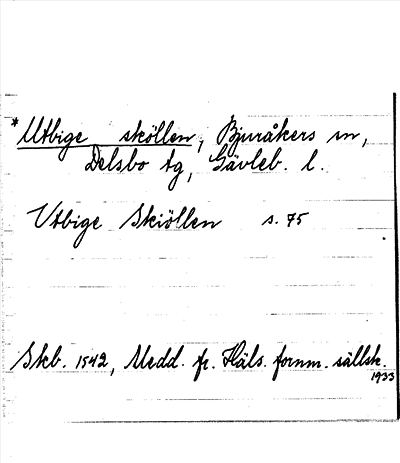 *Utbige sköllen, Bjuråkers sn,
Delsbo tg, Gävleb. l.
Utbige Skiöllen s. 75
Skb. 1542, Medd. fr. Häls. fornm. sällsk.
1933